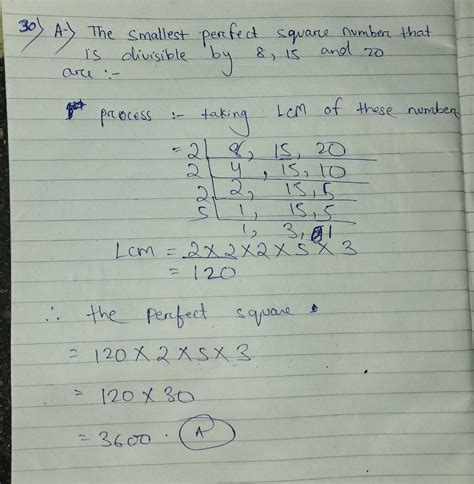 30) A-> The smallest perfect square number that
is divisible by 8, 15 and 20
are :-
process :- taking LCM of these number
= 2 | 8, 15, 20
2 | 4, 15, 10
2 | 2, 15, 5
5 | 1, 15, 5
1, 3, 1
LCM = 2×2×2×5×3
= 120
∴ the perfect square
= 120×2×5×3
= 120×30
= 3600. A